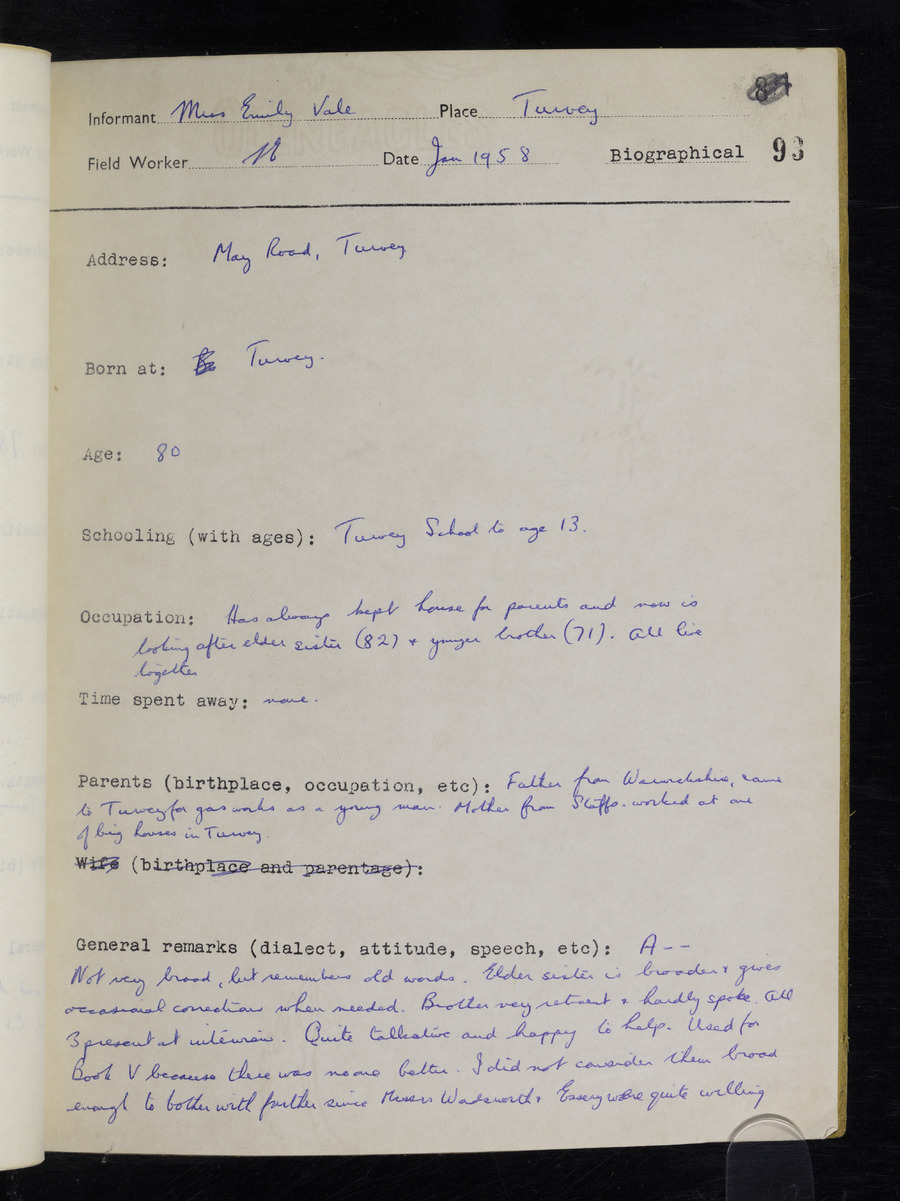 84
Informant Miss Emily Vale Place Turvey
Field Worker Date Jan 1958 Biographical 93
Address: May Road, Turvey
Born at: Turvey.
Age: 80
Schooling (with ages): Turvey School to age 13.
Occupation: Has always kept house for parents and now is
looking after elder sister (82) + younger brother (71). All live
together
Time spent away: none.
Parents (birthplace, occupation, etc): Father from Warwickshire, came
to Turvey for gasworks as a young man. Mother from Staffs. worked at one
of big houses in Turvey.
Wife (birthplace and parentage):
General remarks (dialect, attitude, speech, etc): A--
Not very broad, but remembers old words. Elder sister is broader & gives
occasional correction when needed. Brother very reticent & hardly spoke. All
3 present at interview. Quite talkative and happy to help. Used for
Book V because there was no one better. I did not consider them broad
enough to bother with further since Messrs Wadsworth & were quite willing